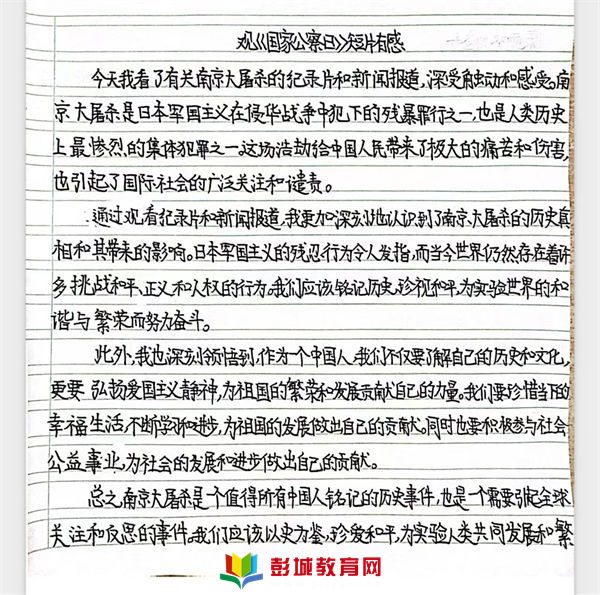 观《国家公祭日》短片有感
今天我看了有关南京大屠杀的纪录片和新闻报道,深受触动和感受。南
京大屠杀是日本军国主义在侵华战争中犯下的残暴罪行之一,也是人类历史
上最惨烈的集体犯罪之一。这场浩劫给中国人民带来了极大的痛苦和伤害,
也引起了国际社会的广泛关注和谴责。
通过观看纪录片和新闻报道,我更加深刻地认识到了南京大屠杀的历史真
相和其带来的影响。日本军国主义的残忍行为令人发指,而当今世界仍然存在着许
多挑战和平、正义和人权的行为。我们应该铭记历史,珍视和平,为实验世界的和
谐与繁荣而努力奋斗。
此外,我也深刻领悟到,作为一个中国人,我们不仅要了解自己的历史和文化,
更要弘扬爱国主义静神,为祖国的繁荣和发展贡献自己的力量。我们要珍惜当下的
幸福生活,不断学习和进步,为祖国的发展做出自己的贡献。同时也要积极参与社会
公益事业,为社会的发展和进步做出自己的贡献。
总之,南京大屠杀是个值得所有中国人铭记的历史事件,也是一个需要引起全球
关注和反思的事件。我们应该以史为鉴,珍爱和平,为实验人类共同发展和繁
彭城教育网